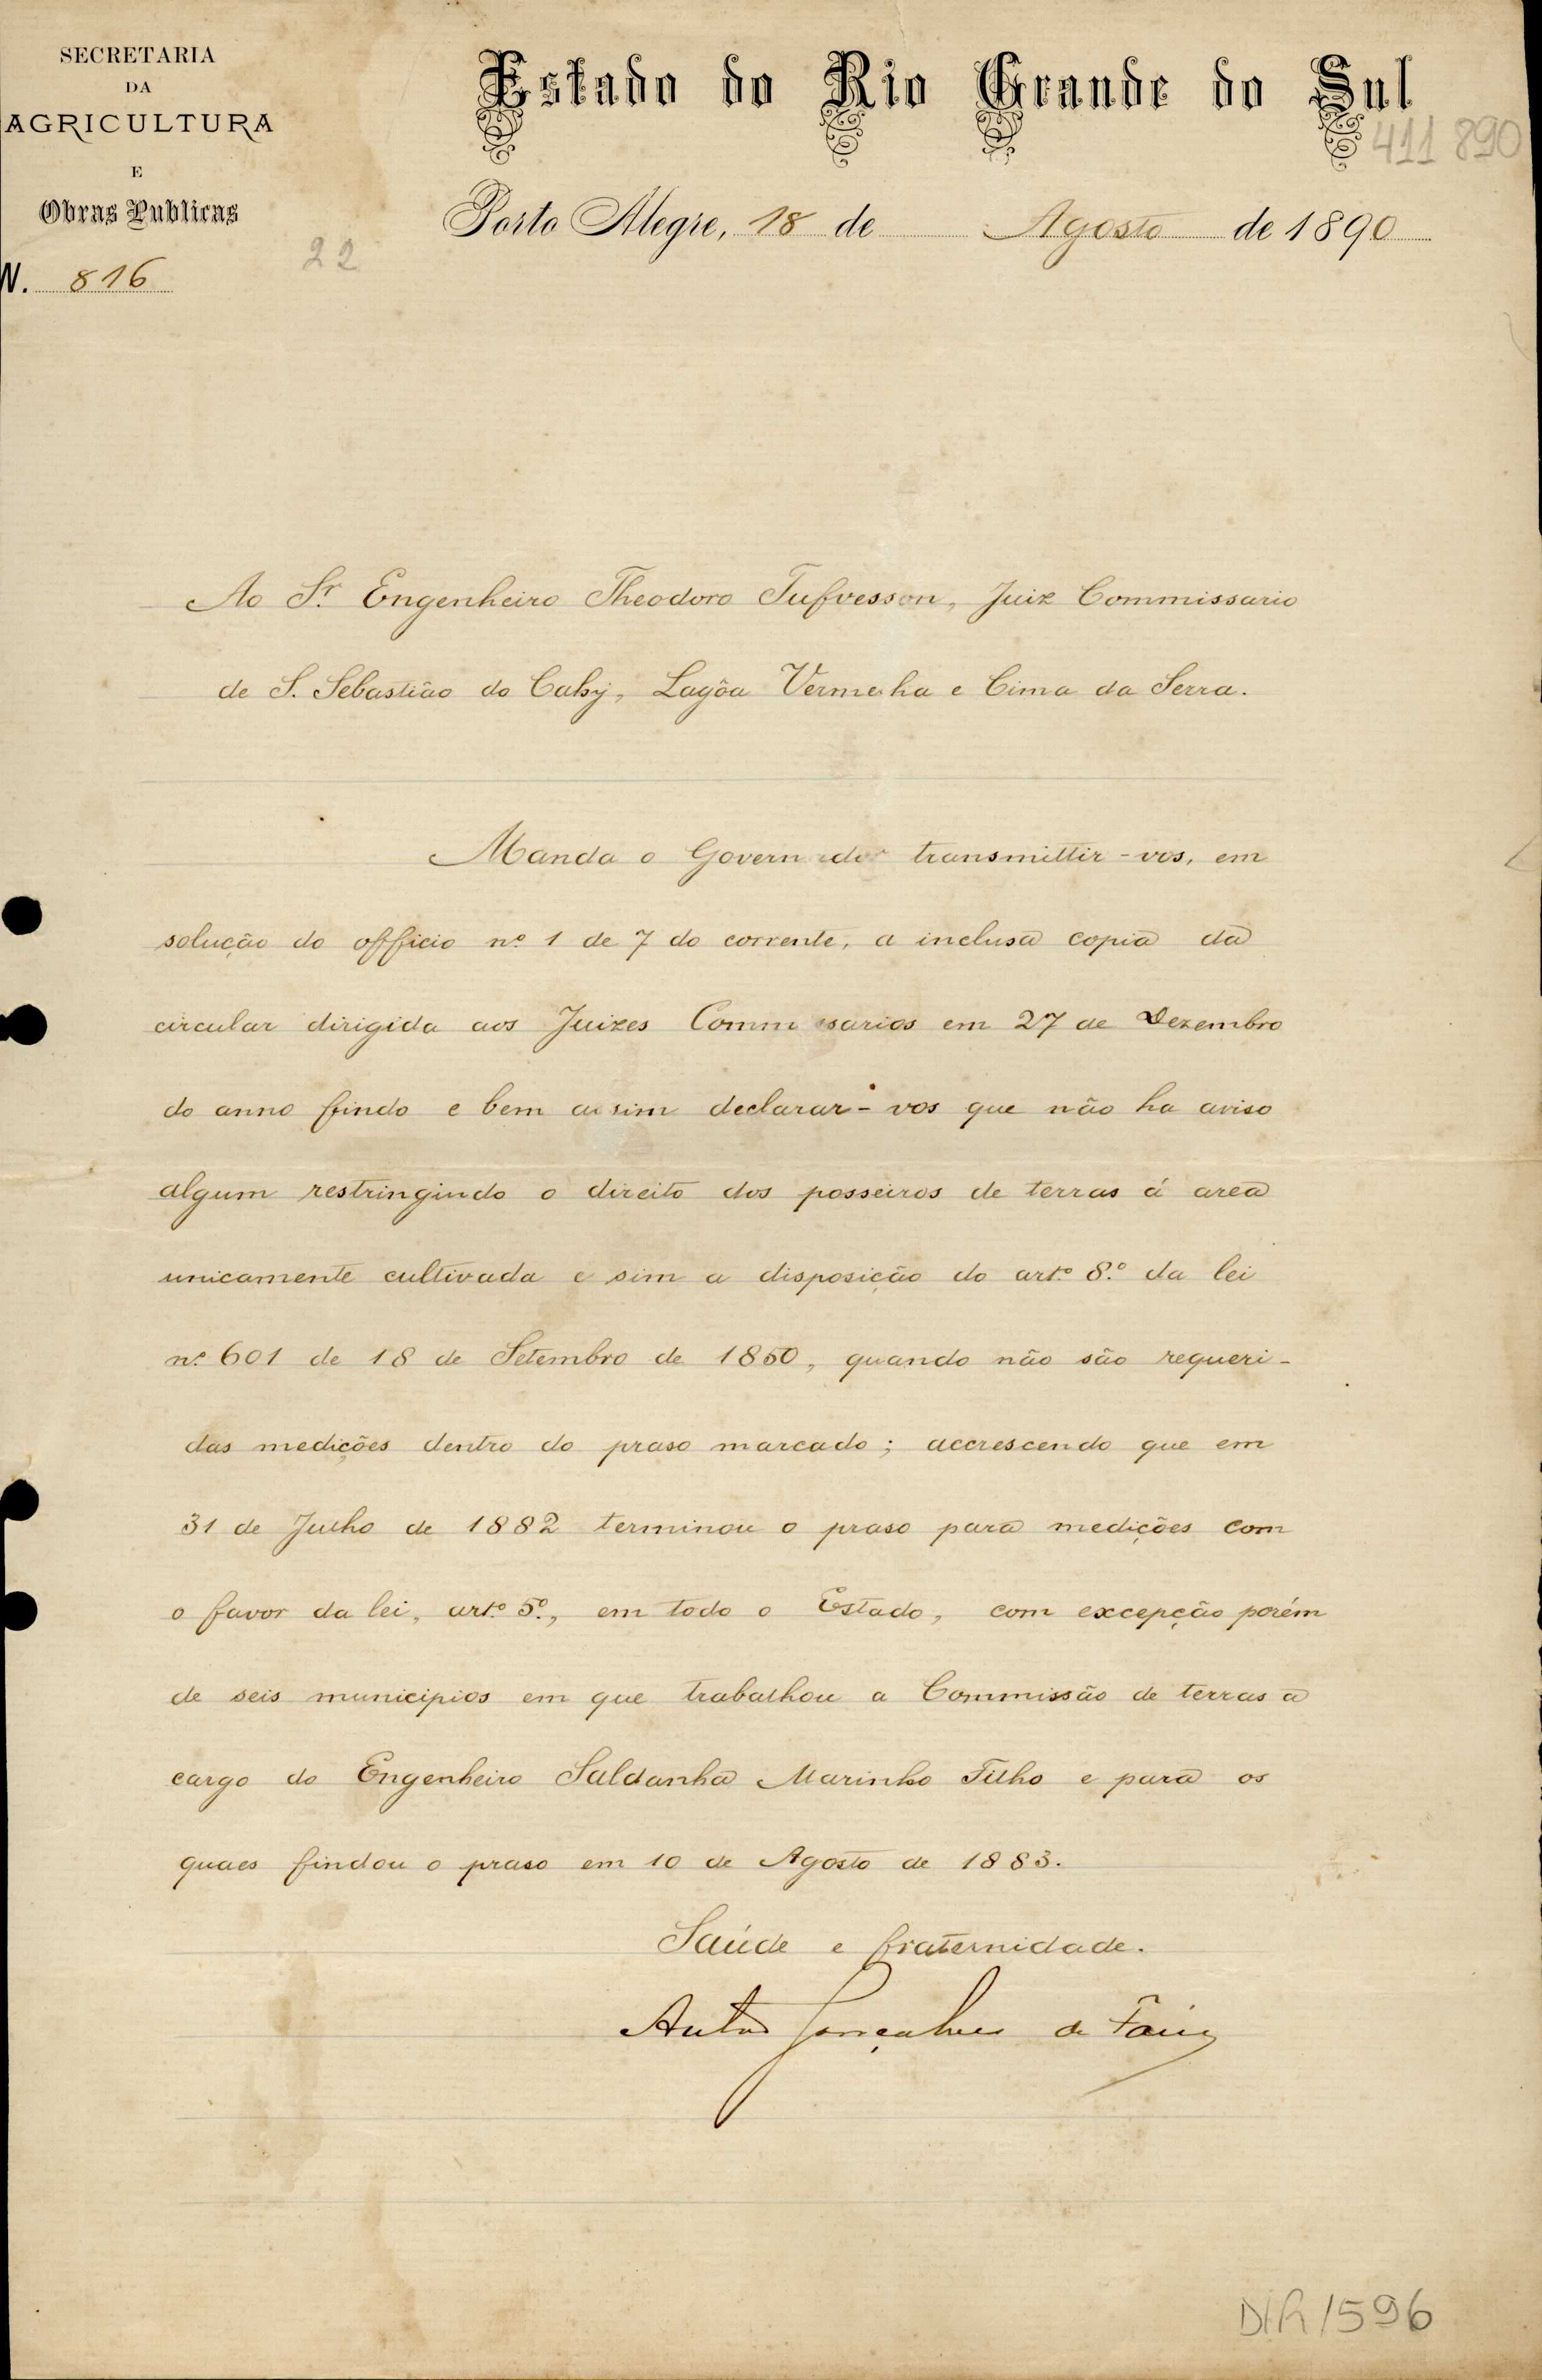 SECRETARIA
DA
AGRICULTURA
E
Obras Publicas
N. 816
22
Estado do Rio Grande do Sul
411 890
Porto Alegre, 18 de Agosto de 1890
Ao Sr. Engenheiro Theodoro Tufvesson, Juiz Commissario
de S. Sebastião do Cahy, Lagôa Vermelha e Cima da Serra.
Manda o Governador transmittir-vos, em
solução do officio nº 1 de 7 do corrente, a inclusa copia da
circular dirigida aos Juizes Commissarios em 27 de Dezembro
do anno findo e bem assim declarar-vos que não ha aviso
algum restringindo o direito dos posseiros de terras á area
unicamente cultivada e sim a disposição do artº 8.º da lei
nº 601 de 18 de Setembro de 1850, quando não são requeri-
das medições dentro do praso marcado; accrescendo que em
31 de Julho de 1882 terminou o praso para medições com
o favor da lei, artº 5º, em todo o Estado, com excepção porém
de seis municipios em que trabalhou a Commissão de terras a
cargo do Engenheiro Saldanha Marinho Filho e para os
quaes findou o praso em 10 de Agosto de 1883.
Saúde e fraternidade.
Antão Gonçalves de Faria
1596